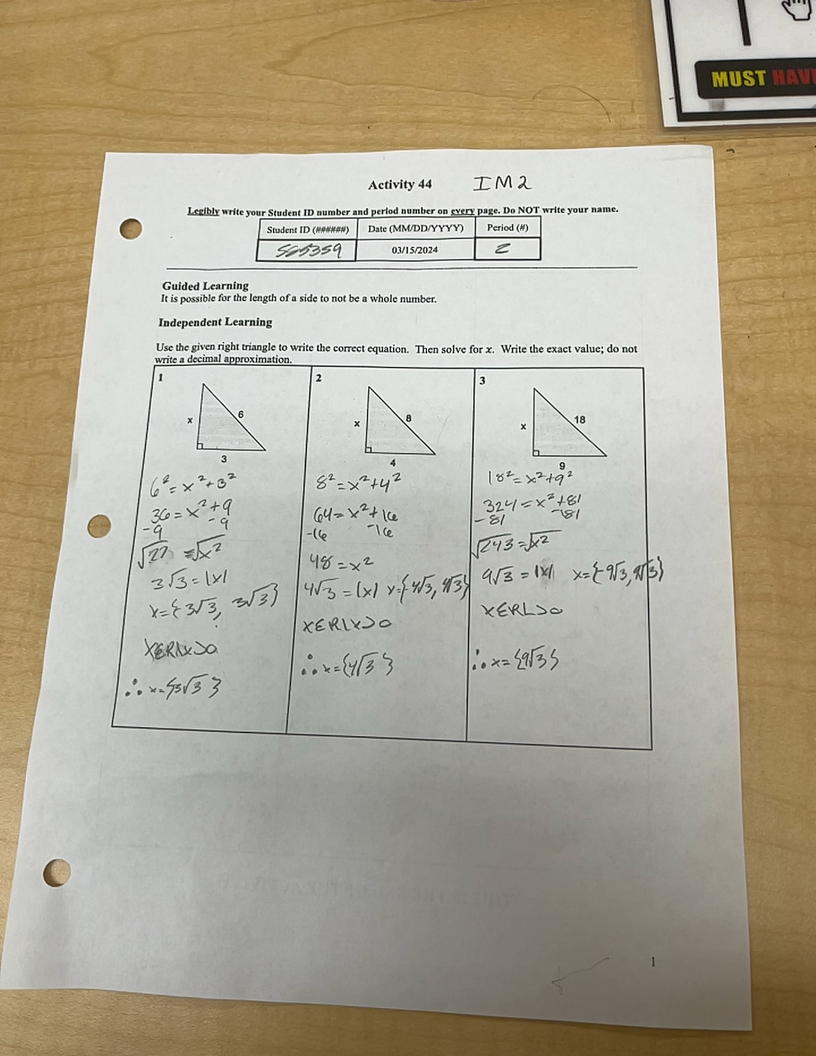 MUST HAV
Activity 44 IM2
Legibly write your Student ID number and period number on every page. Do NOT write your name.
Student ID (######) Date (MM/DD/YYYY) Period (#)
565359 03/15/2024 2
Guided Learning
It is possible for the length of a side to not be a whole number.
Independent Learning
Use the given right triangle to write the correct equation. Then solve for x. Write the exact value; do not
write a decimal approximation.
1
x 6
3
6² = x² + 3²
36 = x² + 9
-9 -9
√27 = √x²
3√3 = |x|
x = {3√3, 3√3}
x∈R|x>0
∴ x = {3√3}
2
x 8
4
8² = x² + 4²
64 = x² + 16
-16 -16
48 = x²
4√3 = |x| x = {-4√3, 4√3}
x∈R|x>0
∴ x = {4√3}
3
x 18
9
18² = x² + 9²
324 = x² + 81
-81 -81
√243 = √x²
9√3 = |x| x = {-9√3, 9√3}
x∈R|>0
∴ x = {9√3}
1